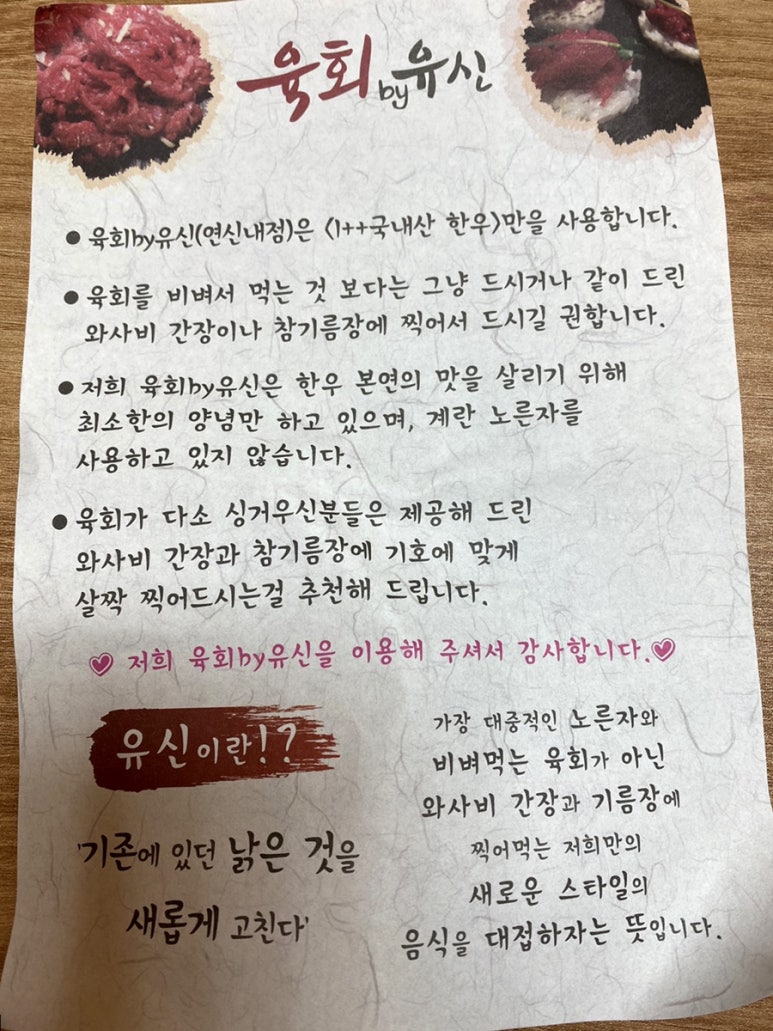 육회by유신
● 육회by유신(연신내점)은 <1++국내산 한우>만을 사용합니다.
● 육회를 비벼서 먹는 것 보다는 그냥 드시거나 같이 드린
와사비 간장이나 참기름장에 찍어서 드시길 권합니다.
● 저희 육회by유신은 한우 본연의 맛을 살리기 위해
최소한의 양념만 하고 있으며, 계란 노른자를
사용하고 있지 않습니다.
● 육회가 다소 싱거우신분들은 제공해 드린
와사비 간장과 참기름장에 기호에 맞게
살짝 찍어드시는걸 추천해 드립니다.
저희 육회by유신을 이용해 주셔서 감사합니다.
유신이란!?
'기존에 있던 낡은 것을
새롭게 고친다'
가장 대중적인 노른자와
비벼먹는 육회가 아닌
와사비 간장과 기름장에
찍어먹는 저희만의
새로운 스타일의
음식을 대접하자는 뜻입니다.